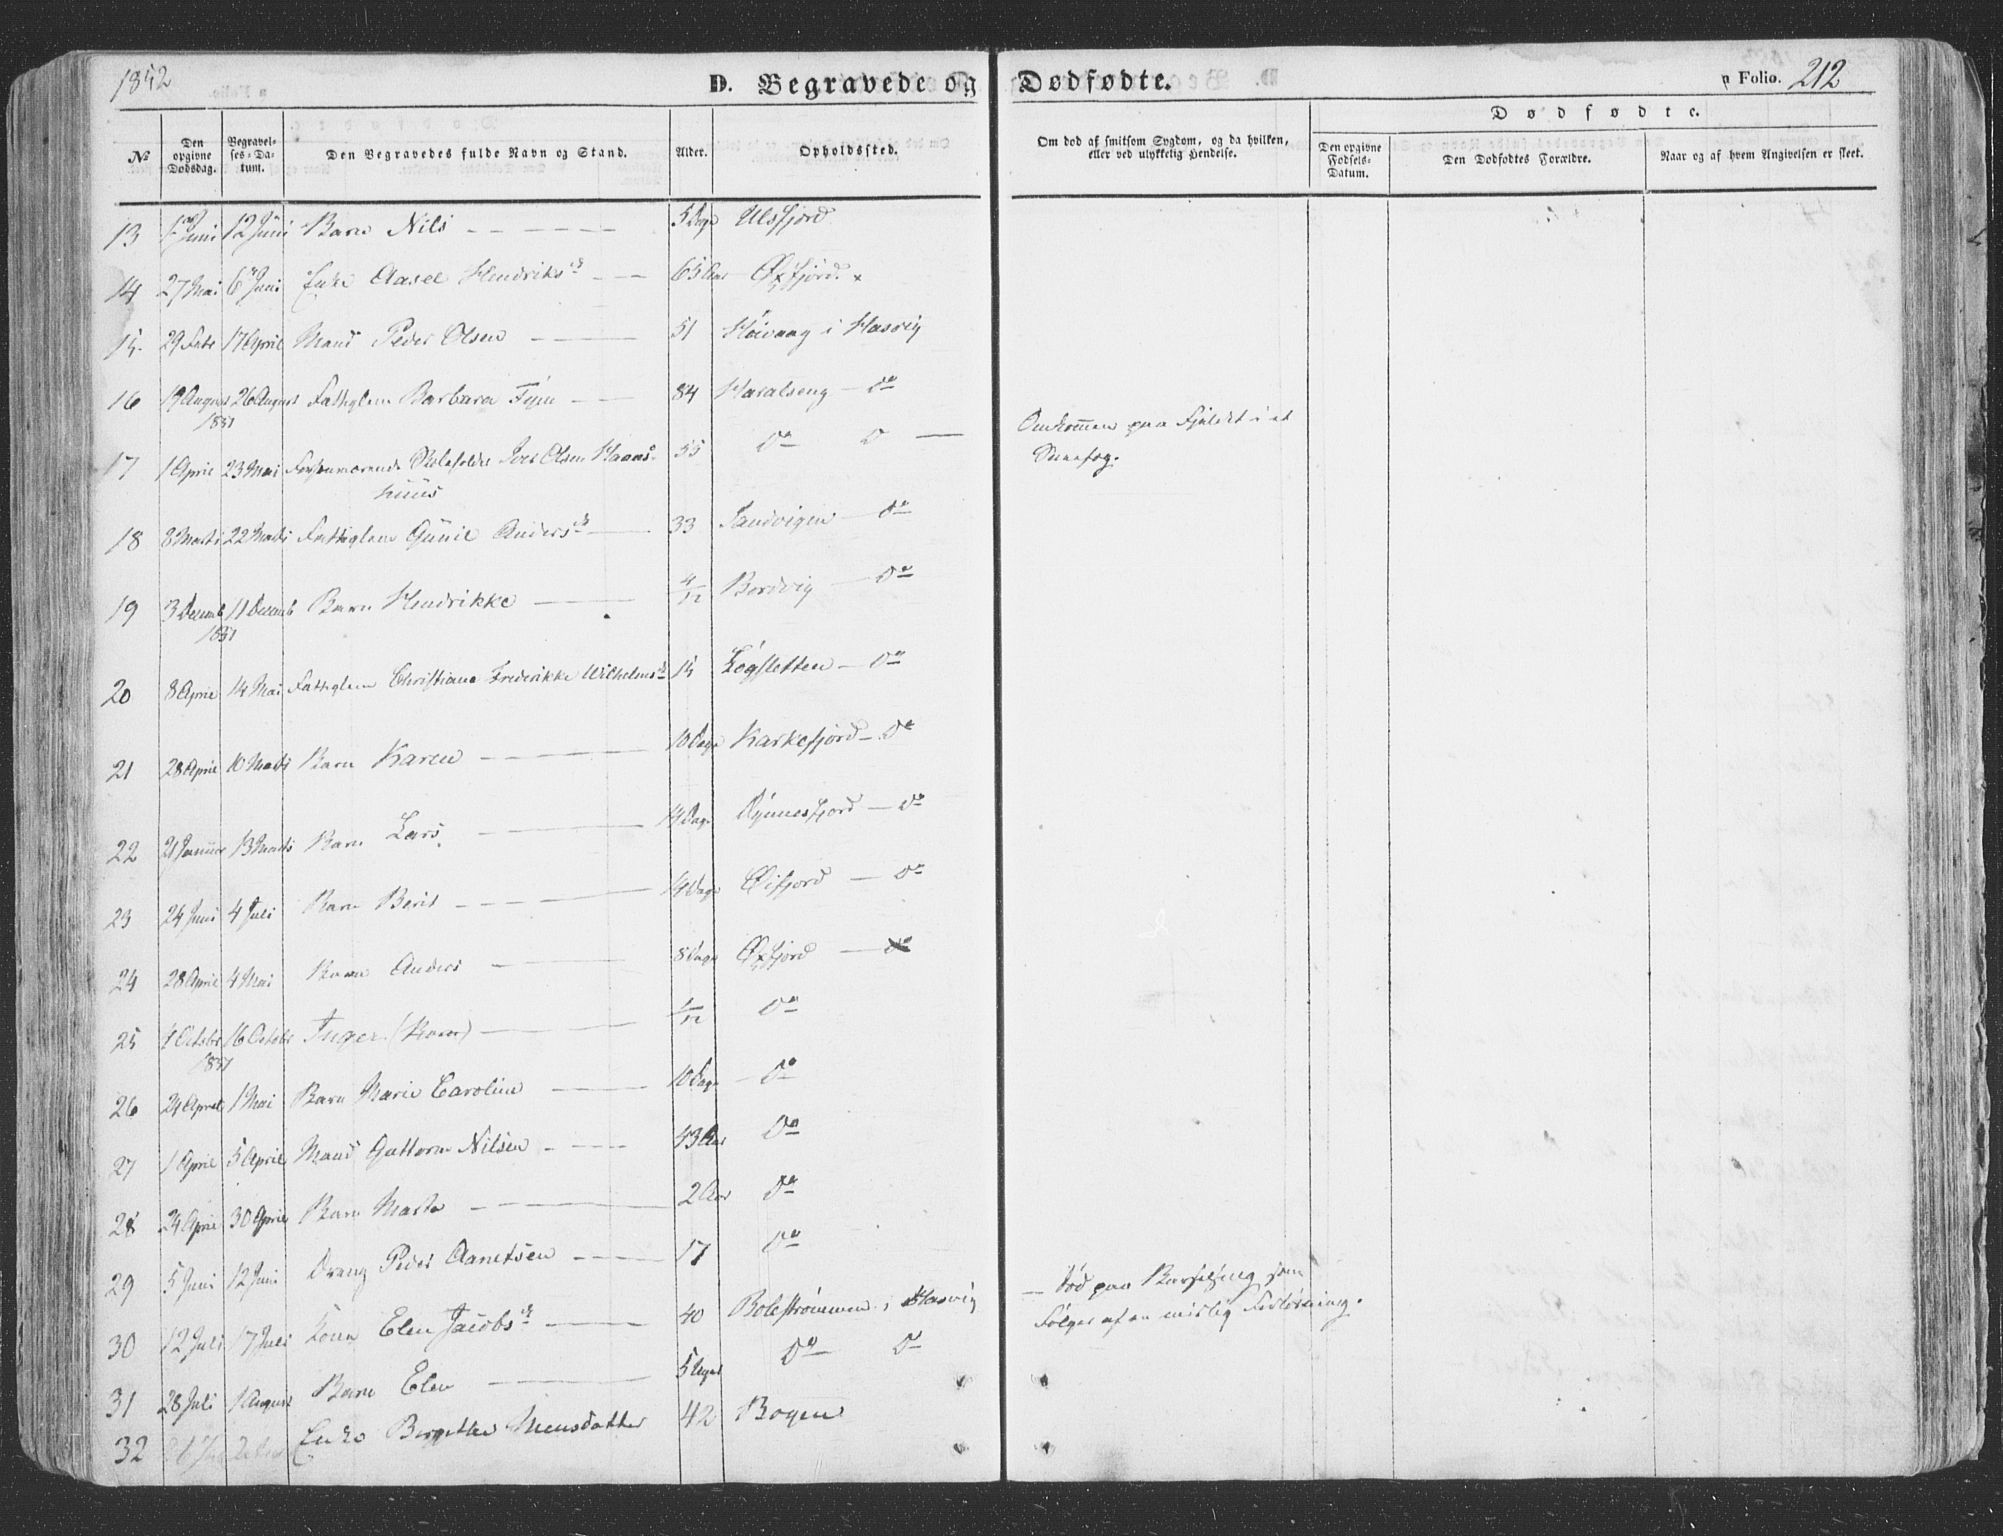 1852
D. Begravede og Dødfødte.
Folio. 212
Dødfødte.
No
Den opgivne Dødsdag.
Begravelses-Datum.
Den Begravedes fulde Navn og Stand.
Alder.
Opholdssted.
Om død af smitsom Sygdom, og da hvilken, eller ved ulykkelig Hendelse.
Den opgivne Fødsels-Datum.
Den Dødfødtes Forældre.
Naar og af hvem Angivelsen er skeet.
13 Juni 12 Juni Barn Nils 5 Dage Ulsfjord
14 27 Mai 6 Juni Enke Aasel Hendriksd 65 Aar Øxfjord
15 29 Febr 17 April Mand Peder Olsen 51 Høivaag i Hasvig
16 19 August 26 August Fattiglem Barbara 84 Haralseng Do
1851
17 1 April 23 Mai Skoleholder Iver Olsen Hans- 55 Do D
huus
Omkommen paa Fjeldet i et
Sneefog.
18 8 Marts 22 Marts Fattiglem Gunil Andersd 33 Sandvigen Do
19 3 Decemb 11 Decemb Barn Hendrikke 4/12 Bordvig Do
1851
20 8 April 14 Mai Fattiglem Christiane Frederikke Wilhelmsd 15 Løgsletten Do
21 28 April 10 Barn Karen 10 Dage Karkefjord Do
22 21 Januar 13 Marts Barn Lars 14 Dage Dønnesfjord Do
23 24 Juni 4 Juli Barn Berit 14 Dage Øifjord Do
24 28 April 4 Mai Barn Anders 8 Dage Øxfjord
25 October 16 October Inger (Barn) 1/12 Do
1851
26 24 April 1 Mai Barn Marie Caroline 10 Dage Do
27 1 April 5 April Mand Guttorm Nilsen 43 Aar Do
28 24 April 30 April Barn 2 Aar Do
29 5 Juni 12 Juni Dreng Peder 17 Do
30 12 Juli 17 Juli Kone Elen Jacobsd 40 Bolestrømmen i Hasvig
Død paa Barselseng som
Følger af en mislig Forløsning.
31 28 Juli 1 August Barn Elen 5 Uger Do D
32 Enke Birgitte Monsdatter 42 Bogen